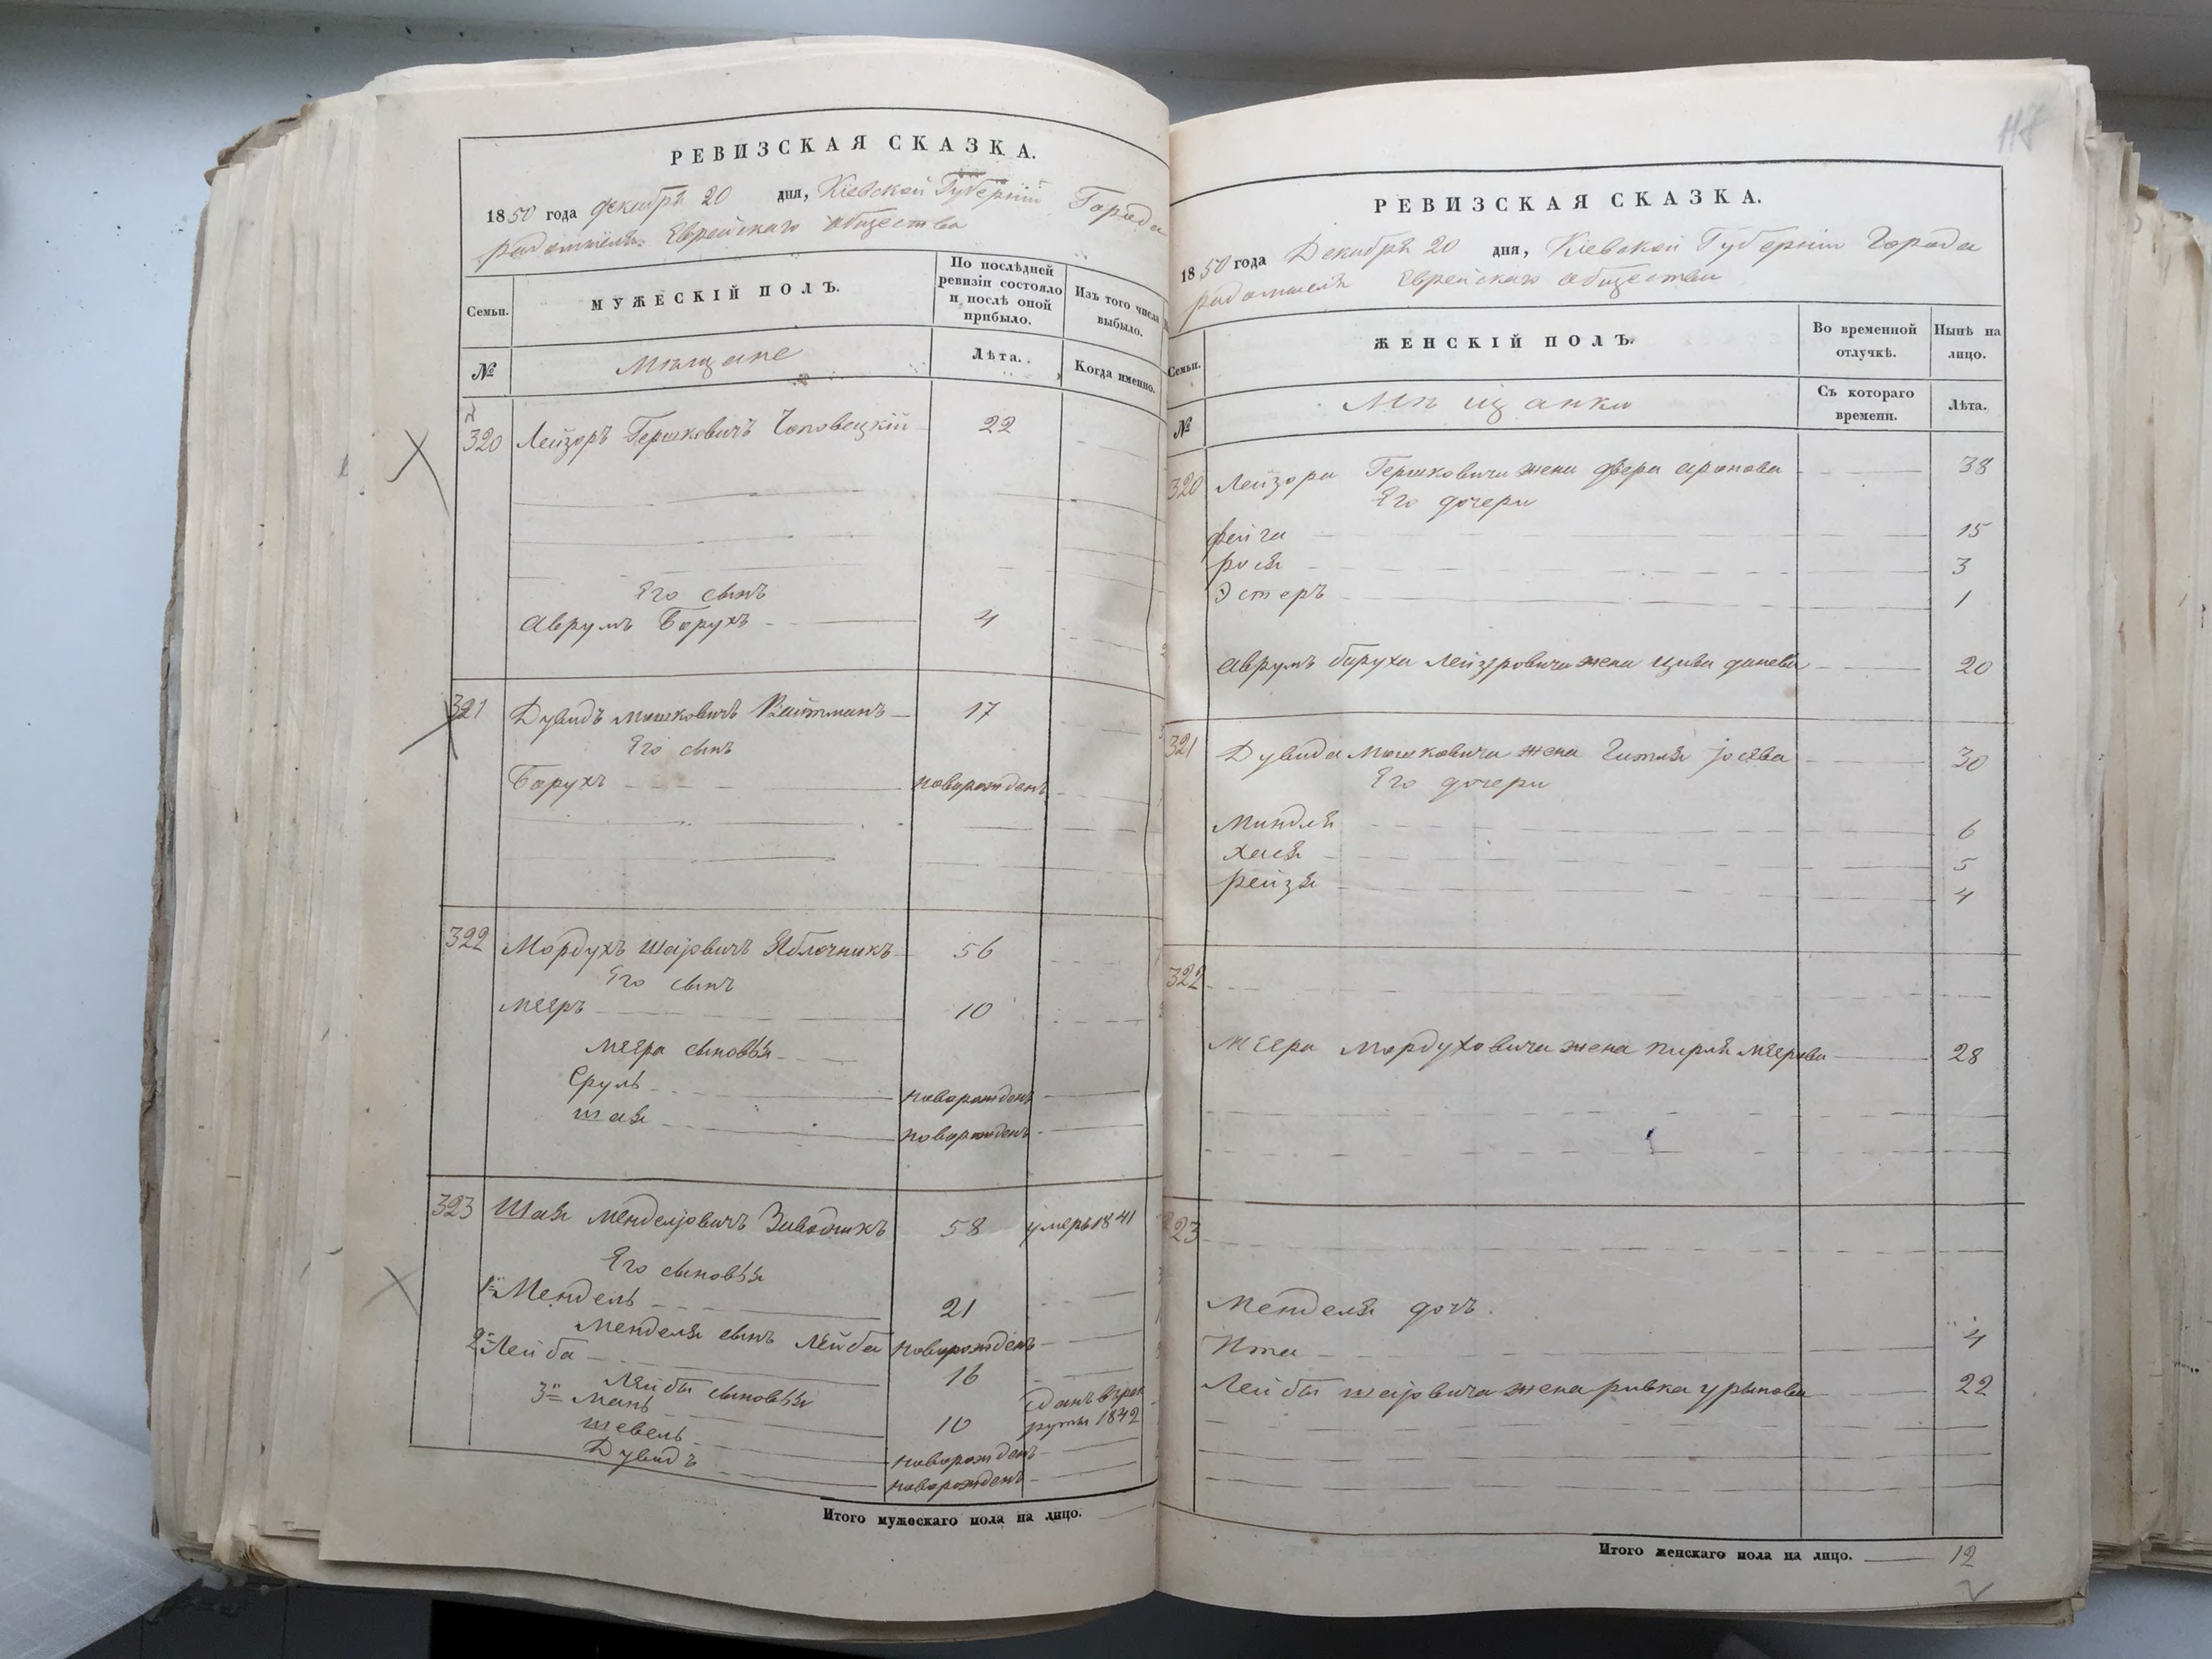 РЕВИЗСКАЯ СКАЗКА.
1850 года декабря 20 дня, Кіевской Губерніи Города
радомысля Еврейскаго общества
Семьи.
МУЖЕСКІЙ ПОЛЪ.
По послѣдней ревизіи состояло и послѣ оной прибыло.
Изъ того числа выбыло.
№
Мѣщане
Лѣта.
Когда именно.
320 Лейзоръ Гершковичъ Чоповецкій 22
Его сынъ
Аврумъ Борухъ 4
321 Дувидъ Мошковичъ Вайтманъ 17
Его сынъ
Борухъ новорожденъ
322 Мордухъ Шаjовичъ Яблочникъ 56
Его сынъ
Мееръ 10
Меера сыновья
Сруль новорожденъ
Шая новорожденъ
323 Шая Менделjовичъ Заводникъ 58 умеръ 1841
Его сыновья
1й Мендель 21
Менделя сынъ Лейба новорожденъ
2й Лейба 16
Лейбы сыновья
3й Мань 10 сданъ в рекруты 1842
Шевель новорожденъ
Дувидъ новорожденъ
Итого мужескаго пола на лицо.
118
РЕВИЗСКАЯ СКАЗКА.
1850 года Декабря 20 дня, Кіевской Губерніи Города
радомысля Еврейскаго общества
Семьи.
ЖЕНСКІЙ ПОЛЪ.
Во временной отлучкѣ.
Нынѣ на лицо.
№
Мѣщанки
Съ котораго времени.
Лѣта.
320 Лейзора Гершковича жена двера аронова 38
Его дочери
фейга 15
рося 3
Эстеръ 1
Аврумъ боруха Лейзеровича жена цива 20
321 Дувида Мошковича жена Гитля Jосева 30
Его дочери
Миндля 6
Хася 5
рейзя 4
322
Меера Мордуховича жена пирля меерова 28
323
Менделя дочь.
Ита 4
Лейбы шаjовича жена ривка урынова 22
Итого женскаго пола на лицо. 12